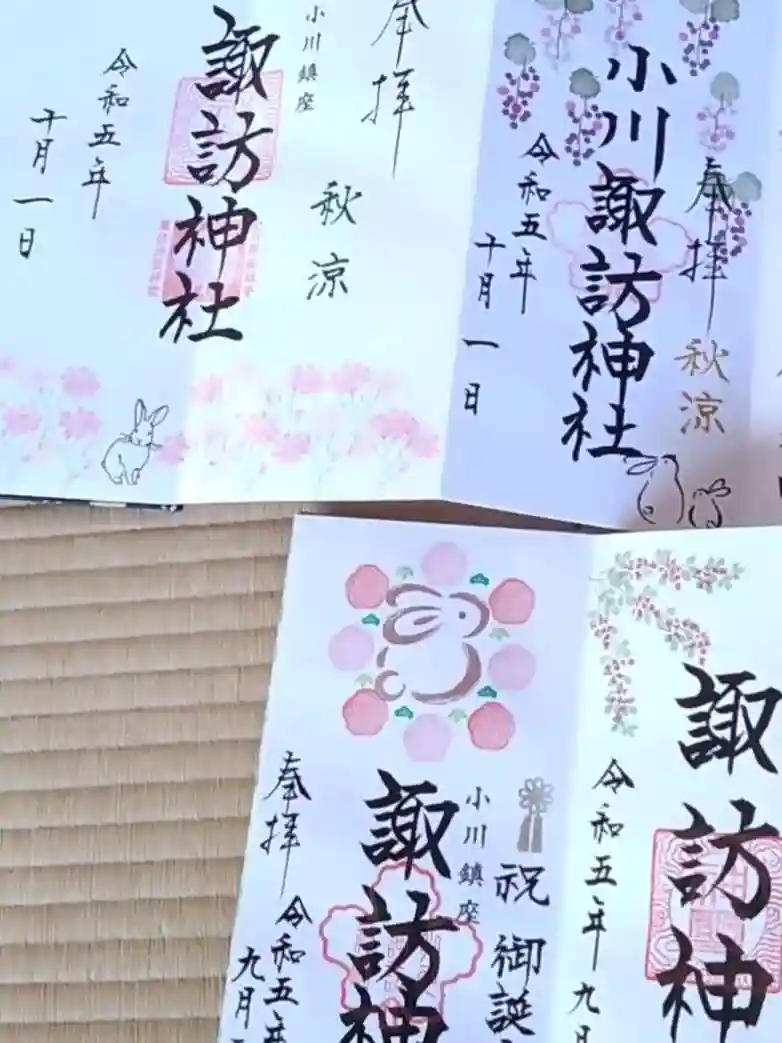 奉拝
小川鎮座
諏訪神社
秋涼
令和五年
十月一日
奉拝
小川諏訪神社
秋涼
令和五年
十月一日
祝御誕
小川鎮座
諏訪神
奉拝
令和五年
九月
諏訪神
令和五年九月